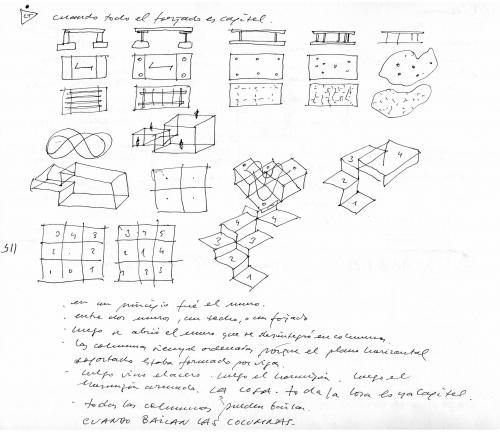 CT cuando todo el forjado es capitel.
3 4
2
1
4 4
3 3
2
1
3 4 3
2 . 2
1 0 1
3 4 5
2 1 4
1 2 3
511
. en un principio fué el muro.
. entre dos muros, un techo, o un forjado
. luego se abrió el muro que se desintegró en columnas.
. las columnas siempre ordenadas porque el plano horizontal
soportado estaba formado por vigas.
. luego vino el acero. luego el hormigón. luego el
hormigón armado. La losa. toda la losa es ya capitel.
. todas las columnas pueden bailar.
CUANDO BAILAN LAS COLUMNAS.